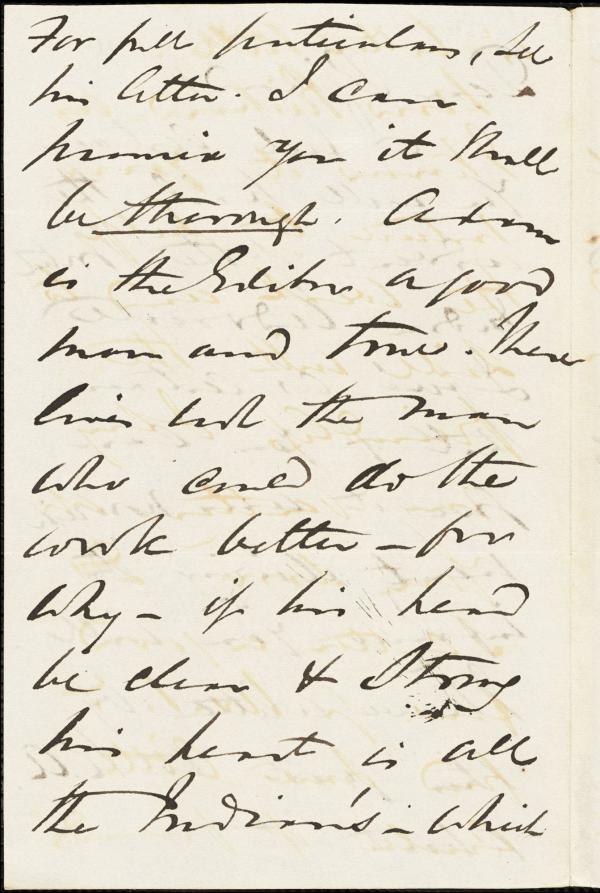 For full particulars, see
his letter. I can
promise you it shall
be thorough. Adam
is the Editor a good
man and true. There
lives not the man
who could do the
work better – for
why – if his head
be clear & strong
his heart is all
the Indian's – which